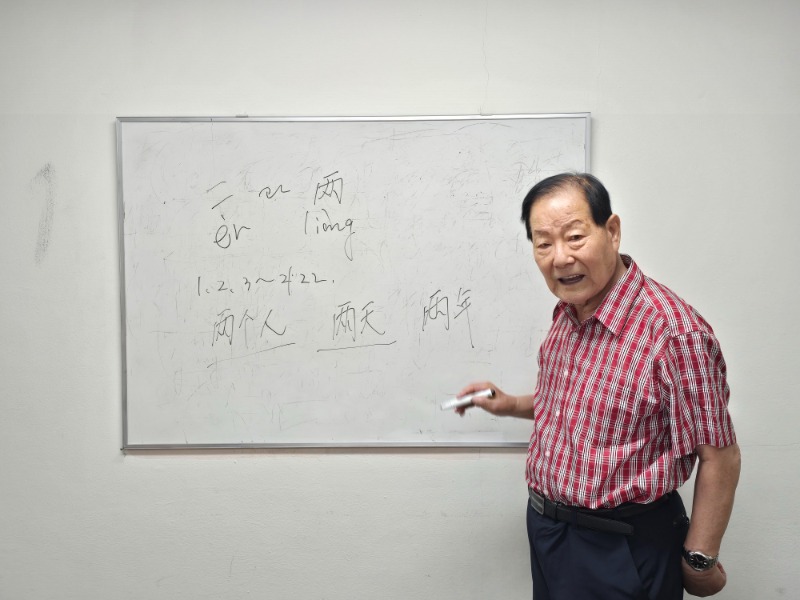 二 两
èr liǎng
1、2、3～21 22.
两个人 两天 两年